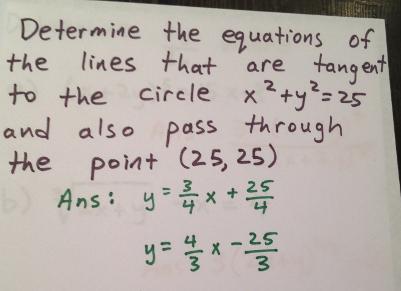 Determine the equations of
the lines that are tangent
to the circle x²+y²=25
and also pass through
the point (25, 25)
Ans: y = 3/4 x + 25/4
y = 4/3 x - 25/3